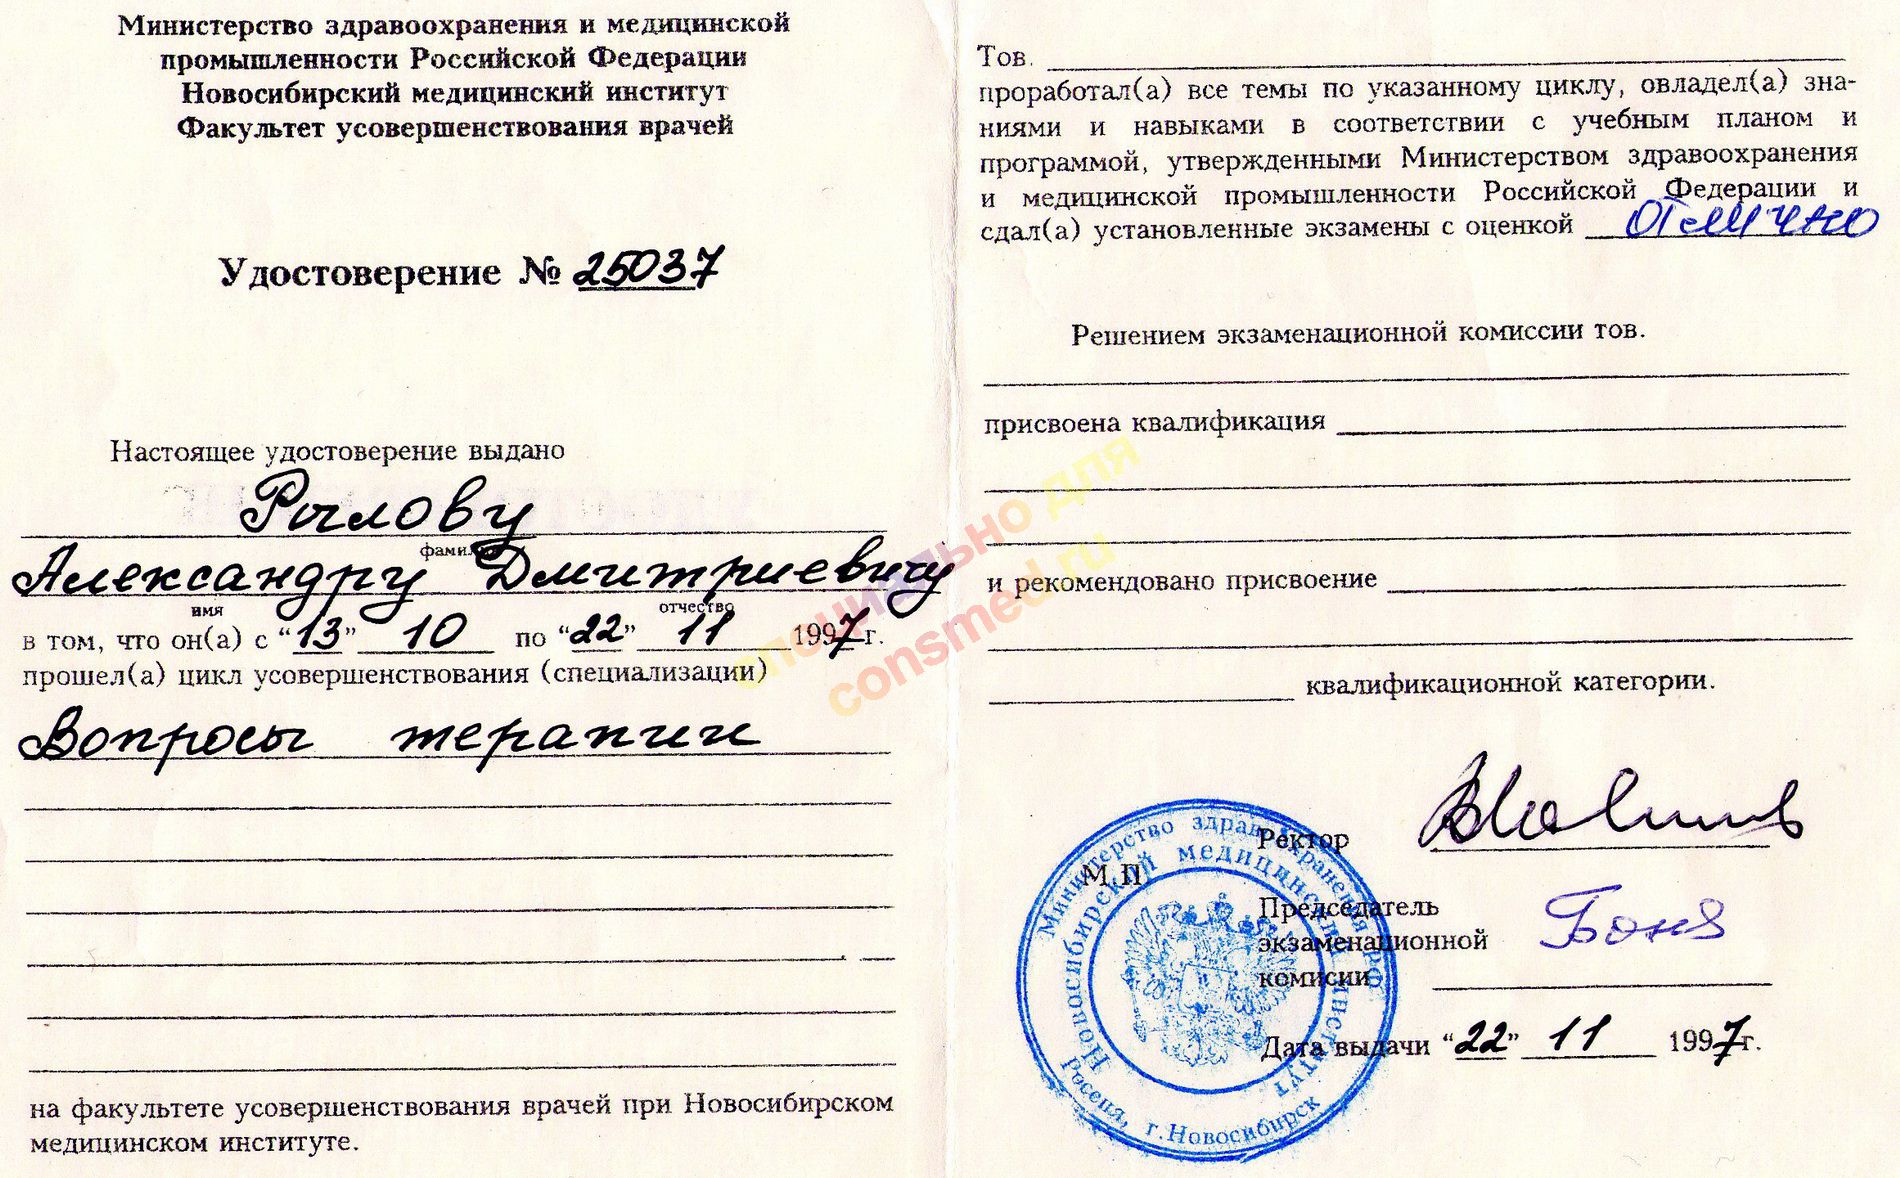 Министерство здравоохранения и медицинской
промышленности Российской Федерации
Новосибирский медицинский институт
Факультет усовершенствования врачей
Удостоверение № 25037
Настоящее удостоверение выдано
Рылову
фамилия
Александру Дмитриевичу
имя отчество
в том, что он(а) с “13” 10 по “22” 11 1997 г.
прошел(а) цикл усовершенствования (специализации)
Вопросы терапии
на факультете усовершенствования врачей при Новосибирском
медицинском институте.
Тов.
проработал(а) все темы по указанному циклу, овладел(а) зна-
ниями и навыками в соответствии с учебным планом и
программой, утвержденными Министерством здравоохранения
и медицинской промышленности Российской Федерации и
сдал(а) установленные экзамены с оценкой отлично
Решением экзаменационной комиссии тов.
присвоена квалификация
и рекомендовано присвоение
квалификационной категории.
Ректор
М.П.
Председатель
экзаменационной
комисии
Дата выдачи “22” 11 1997г.
Министерство здравоохранения РФ
Новосибирский медицинский институт
Россия, г.Новосибирск
специально для
consmed.ru